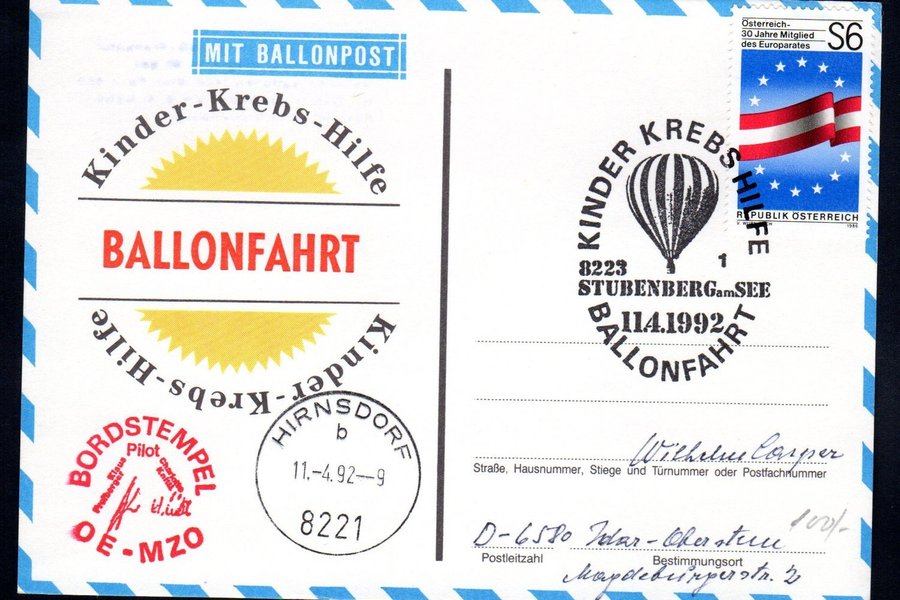 MIT BALLONPOST
Kinder-Krebs-Hilfe
BALLONFAHRT
Kinder-Krebs-Hilfe
BORDSTEMPEL
Pilot
Klaus
OE-MZO
HIRNSDORF
b
11.-4.92--9
8221
Österreich-
30 Jahre Mitglied
des Europarates
S6
REPUBLIK ÖSTERREICH
1986
KINDER KREBS HILFE
8223 1
STUBENBERGamSEE
11.4.1992
BALLONFAHRT
Wilhelm Casper
Straße, Hausnummer, Stiege und Türnummer oder Postfachnummer
100/-
D-6580 Idar-Oberstein
Postleitzahl Bestimmungsort
Magdeburgerstr. 2